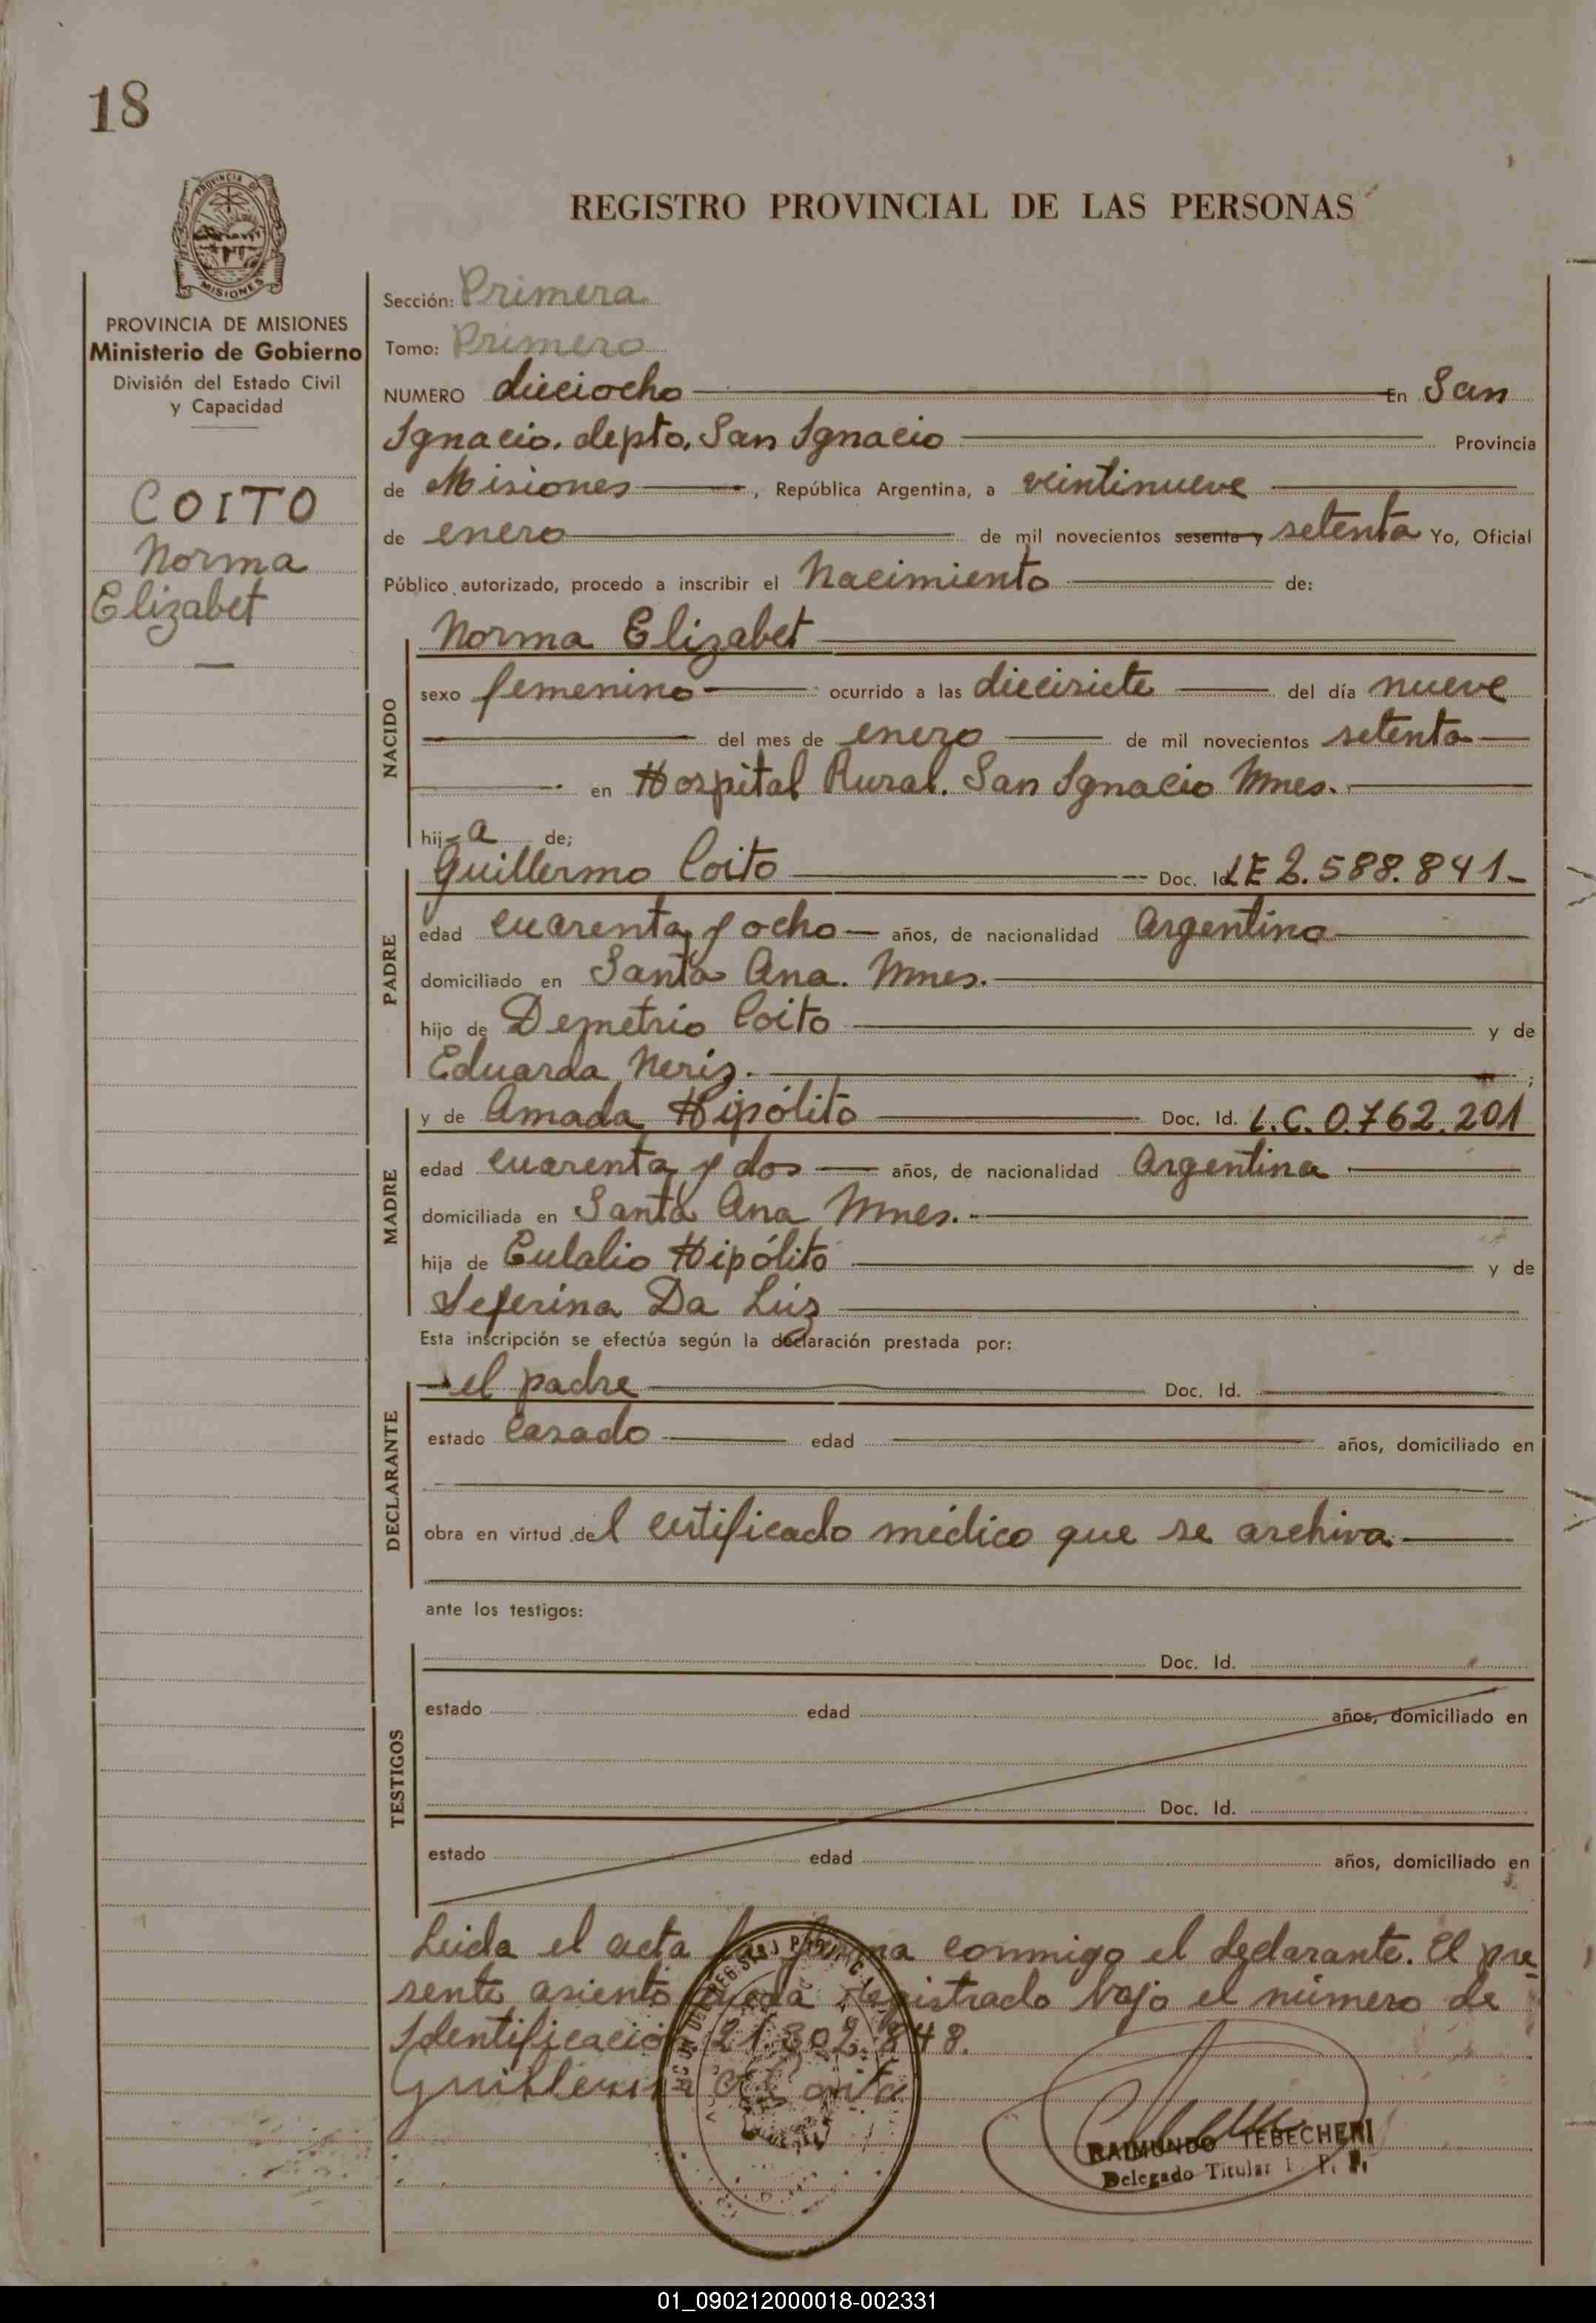 18
PROVINCIA DE MISIONES
REGISTRO PROVINCIAL DE LAS PERSONAS
PROVINCIA DE MISIONES
Ministerio de Gobierno
División del Estado Civil
y Capacidad
COITO
Norma
Elizabet
Sección: Primera
Tomo: Primero
NUMERO dieciocho En San
Ignacio. depto. San Ignacio Provincia
de Misiones, República Argentina, a veintinueve
de enero de mil novecientos sesenta y setenta Yo, Oficial
Público autorizado, procedo a inscribir el Nacimiento de:
NACIDO
Norma Elizabet
sexo femenino ocurrido a las diecisiete del día nueve
del mes de enero de mil novecientos setenta
en Hospital Rural. San Ignacio Mnes.
hij-a de;
PADRE
Guillermo Coito Doc. Id LE 2.588.841-
edad cuarenta y ocho años, de nacionalidad Argentina
domiciliado en Santa Ana. Mnes.
hijo de Demetrio Coito y de
Eduarda Neris. ;
MADRE
y de Amada Hipólito Doc. Id. L.C. 0.762.201
edad cuarenta y dos años, de nacionalidad Argentina
domiciliada en Santa Ana Mnes.
hija de Eulalio Hipólito y de
Seferina Da Luz
Esta inscripción se efectúa según la declaración prestada por:
DECLARANTE
el padre Doc. Id.
estado Casado edad años, domiciliado en
obra en virtud del certificado médico que se archiva
ante los testigos:
TESTIGOS
Doc. Id.
estado edad años, domiciliado en
Doc. Id.
estado edad años, domiciliado en
Leida el acta la firma conmigo el declarante. El pre
sente asiento queda registrado bajo el número de
Identificación 21.302.848.
Guillermo Coito
RAIMUNDO TEBECHERI
Delegado Titular
01_090212000018-002331